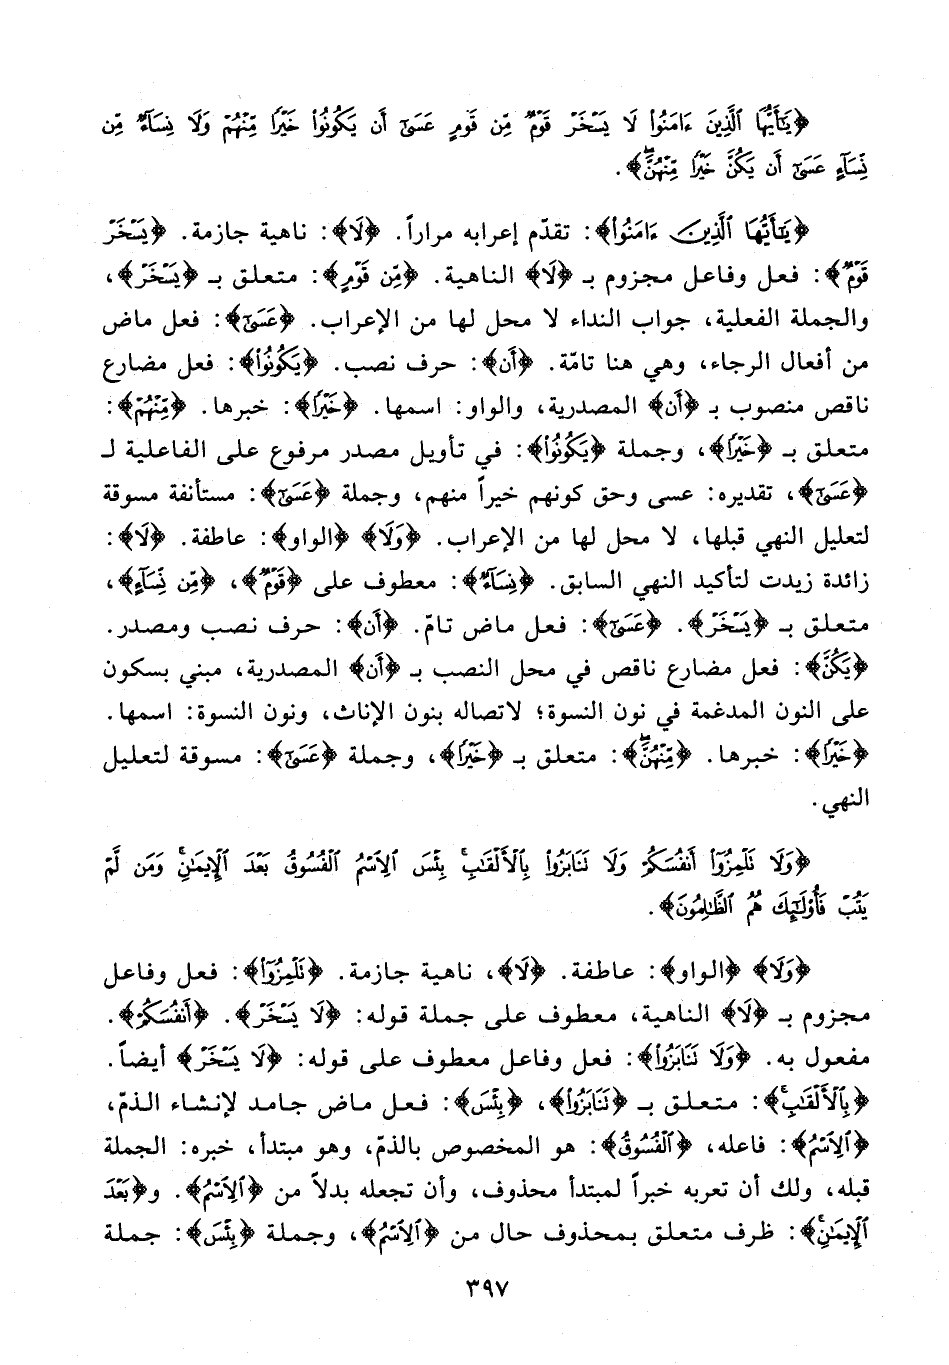 ﴿يَٰٓأَيُّهَا ٱلَّذِينَ ءَامَنُوا۟ لَا يَسْخَرْ قَوْمٌ مِّن قَوْمٍ عَسَىٰٓ أَن يَكُونُوا۟ خَيْرًا مِّنْهُمْ وَلَا نِسَآءٌ مِّن
نِّسَآءٍ عَسَىٰٓ أَن يَكُنَّ خَيْرًا مِّنْهُنَّۖ﴾.
﴿يَٰٓأَيُّهَا ٱلَّذِينَ ءَامَنُوا۟﴾: تقدّم إعرابه مراراً. ﴿لَا﴾: ناهية جازمة. ﴿يَسْخَرْ
قَوْمٌ﴾: فعل وفاعل مجزوم بـ ﴿لَا﴾ الناهية. ﴿مِّن قَوْمٍ﴾: متعلق بـ ﴿يَسْخَرْ﴾،
والجملة الفعلية، جواب النداء لا محل لها من الإعراب. ﴿عَسَىٰٓ﴾: فعل ماض
من أفعال الرجاء، وهي هنا تامّة. ﴿أَن﴾: حرف نصب. ﴿يَكُونُوا۟﴾: فعل مضارع
ناقص منصوب بـ ﴿أَن﴾ المصدرية، والواو: اسمها. ﴿خَيْرًا﴾: خبرها. ﴿مِّنْهُمْ﴾:
متعلق بـ ﴿خَيْرًا﴾، وجملة ﴿يَكُونُوا۟﴾: في تأويل مصدر مرفوع على الفاعلية لـ
﴿عَسَىٰٓ﴾، تقديره: عسى وحق كونهم خيراً منهم، وجملة ﴿عَسَىٰٓ﴾: مستأنفة مسوقة
لتعليل النهي قبلها، لا محل لها من الإعراب. ﴿وَلَا﴾ ﴿الواو﴾: عاطفة. ﴿لَا﴾:
زائدة زيدت لتأكيد النهي السابق. ﴿نِسَآءٌ﴾: معطوف على ﴿قَوْمٌ﴾، ﴿مِّن نِّسَآءٍ﴾،
متعلق بـ ﴿يَسْخَرْ﴾. ﴿عَسَىٰٓ﴾: فعل ماض تامّ. ﴿أَن﴾: حرف نصب ومصدر.
﴿يَكُنَّ﴾: فعل مضارع ناقص في محل النصب بـ ﴿أَن﴾ المصدرية، مبني بسكون
على النون المدغمة في نون النسوة؛ لاتصاله بنون الإناث، ونون النسوة: اسمها.
﴿خَيْرًا﴾: خبرها. ﴿مِّنْهُنَّۖ﴾: متعلق بـ ﴿خَيْرًا﴾، وجملة ﴿عَسَىٰٓ﴾: مسوقة لتعليل
النهي.
﴿وَلَا تَلْمِزُوٓا۟ أَنفُسَكُمْ وَلَا تَنَابَزُوا۟ بِٱلْأَلْقَٰبِۖ بِئْسَ ٱلِٱسْمُ ٱلْفُسُوقُ بَعْدَ ٱلْإِيمَٰنِۚ وَمَن لَّمْ
يَتُبْ فَأُو۟لَٰٓئِكَ هُمُ ٱلظَّٰلِمُونَ﴾.
﴿وَلَا﴾ ﴿الواو﴾: عاطفة. ﴿لَا﴾، ناهية جازمة. ﴿تَلْمِزُوٓا۟﴾: فعل وفاعل
مجزوم بـ ﴿لَا﴾ الناهية، معطوف على جملة قوله: ﴿لَا يَسْخَرْ﴾. ﴿أَنفُسَكُمْ﴾.
مفعول به. ﴿وَلَا تَنَابَزُوا۟﴾: فعل وفاعل معطوف على قوله: ﴿لَا يَسْخَرْ﴾ أيضاً.
﴿بِٱلْأَلْقَٰبِۖ﴾: متعلق بـ ﴿تَنَابَزُوا۟﴾، ﴿بِئْسَ﴾: فعل ماض جامد لإنشاء الذمّ،
﴿ٱلِٱسْمُ﴾: فاعله، ﴿ٱلْفُسُوقُ﴾: هو المخصوص بالذمّ، وهو مبتدأ، خبره: الجملة
قبله، ولك أن تعربه خبراً لمبتدأ محذوف، وأن تجعله بدلاً من ﴿ٱلِٱسْمُ﴾. و﴿بَعْدَ
ٱلْإِيمَٰنِۚ﴾: ظرف متعلق بمحذوف حال من ﴿ٱلِٱسْمُ﴾، وجملة ﴿بِئْسَ﴾: جملة
٣٩٧